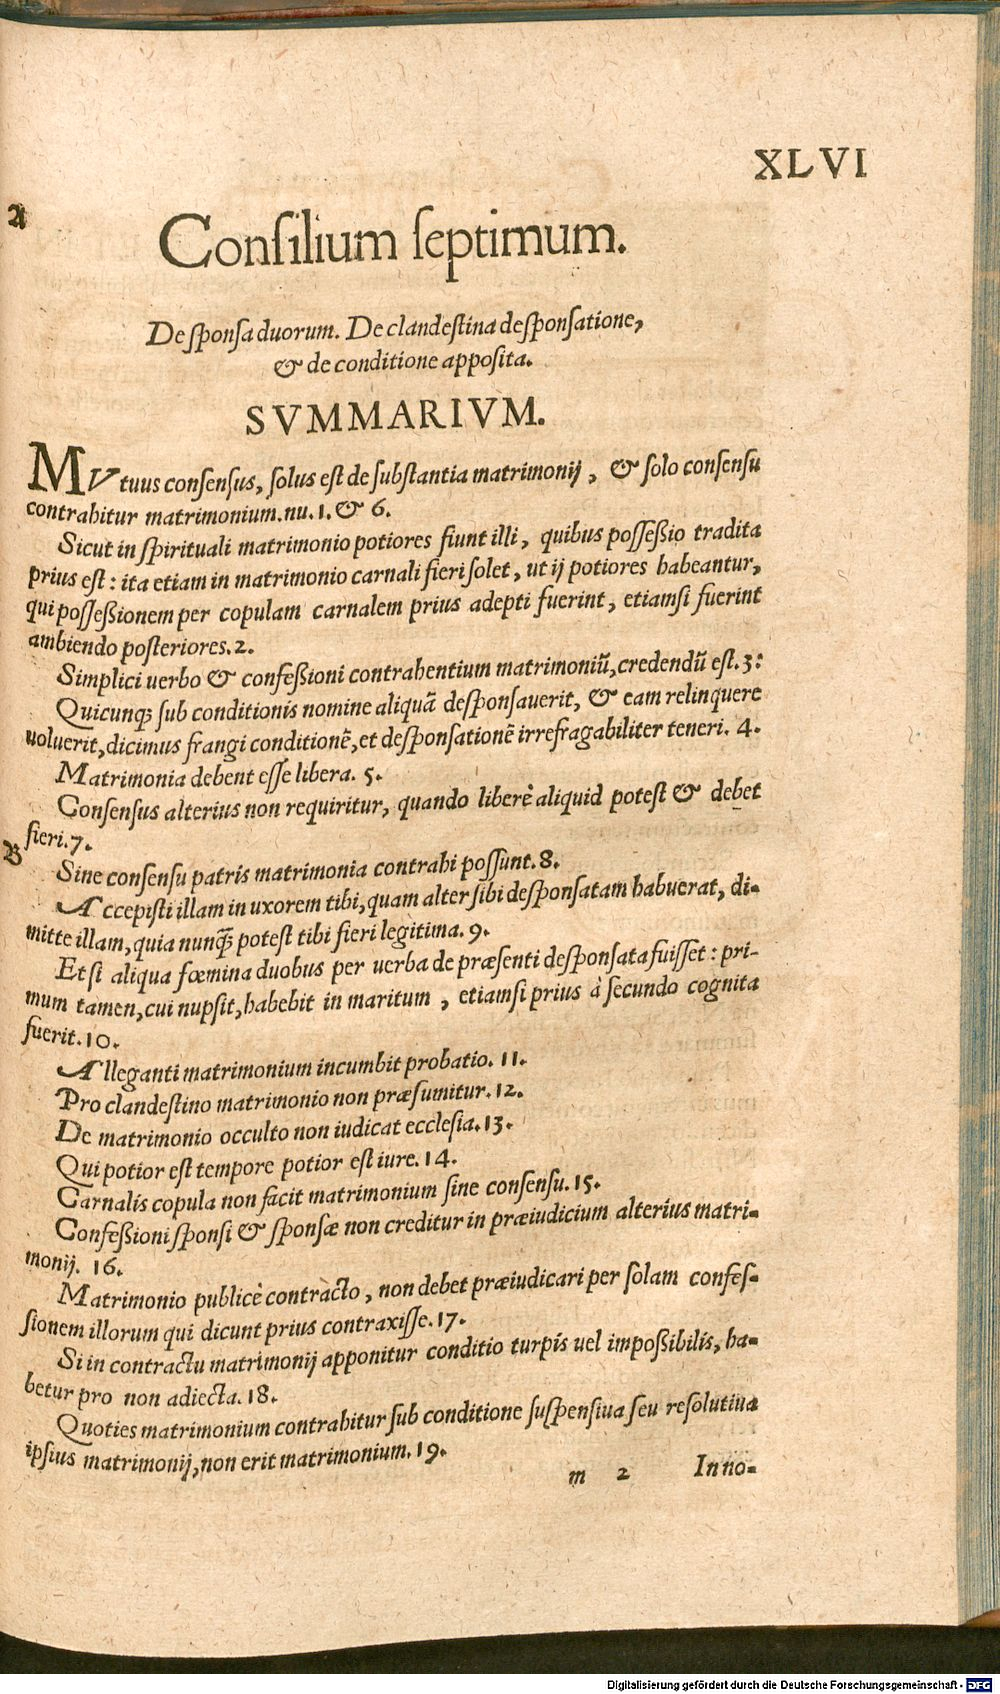 XLVI
A
Consilium septimum.
De sponsa duorum. De clandestina desponsatione,
& de conditione apposita.
SVMMARIVM.
MVtuus consensus, solus est de substantia matrimonij, & solo consensu
contrahitur matrimonium.nu.1.& 6.
Sicut in spirituali matrimonio potiores fiunt illi, quibus possessio tradita
prius est: ita etiam in matrimonio carnali fieri solet, ut ij potiores habeantur,
qui possessionem per copulam carnalem prius adepti fuerint, etiamsi fuerint
ambiendo posteriores.2.
Simplici uerbo & confessioni contrahentium matrimoniũ, credendũ est.3:
Quicunq; sub conditionis nomine aliquã desponsauerit, & eam relinquere
uoluerit, dicimus frangi conditionẽ, et desponsationẽ irrefragabiliter teneri. 4.
Matrimonia debent esse libera. 5.
Consensus alterius non requiritur, quando liberè aliquid potest & debet
fieri.7.
B
Sine consensu patris matrimonia contrahi possunt.8.
Accepisti illam in uxorem tibi, quam alter sibi desponsatam habuerat, di-
mitte illam, quia nunq̃ potest tibi fieri legitima.9.
Et si aliqua fœmina duobus per uerba de præsenti desponsata fuisset: pri-
mum tamen, cui nupsit, habebit in maritum, etiamsi prius à secundo cognita
fuerit.10.
Alleganti matrimonium incumbit probatio. 11.
Pro clandestino matrimonio non præsumitur.12.
De matrimonio occulto non iudicat ecclesia.13.
Qui potior est tempore potior est iure.14.
Carnalis copula non facit matrimonium sine consensu.15.
Confessioni sponsi & sponsæ non creditur in præiudicium alterius matri-
monij. 16.
Matrimonio publicè contracto, non debet præiudicari per solam confes-
sionem illorum qui dicunt prius contraxisse.17.
Si in contractu matrimonij apponitur conditio turpis uel impossibilis, ha-
betur pro non adiecta.18.
Quoties matrimonium contrahitur sub conditione suspensiua seu resolutiua
ipsius matrimonij, non erit matrimonium.19.
m 2 Inno-
Digitalisierung gefördert durch die Deutsche Forschungsgemeinschaft - DFG